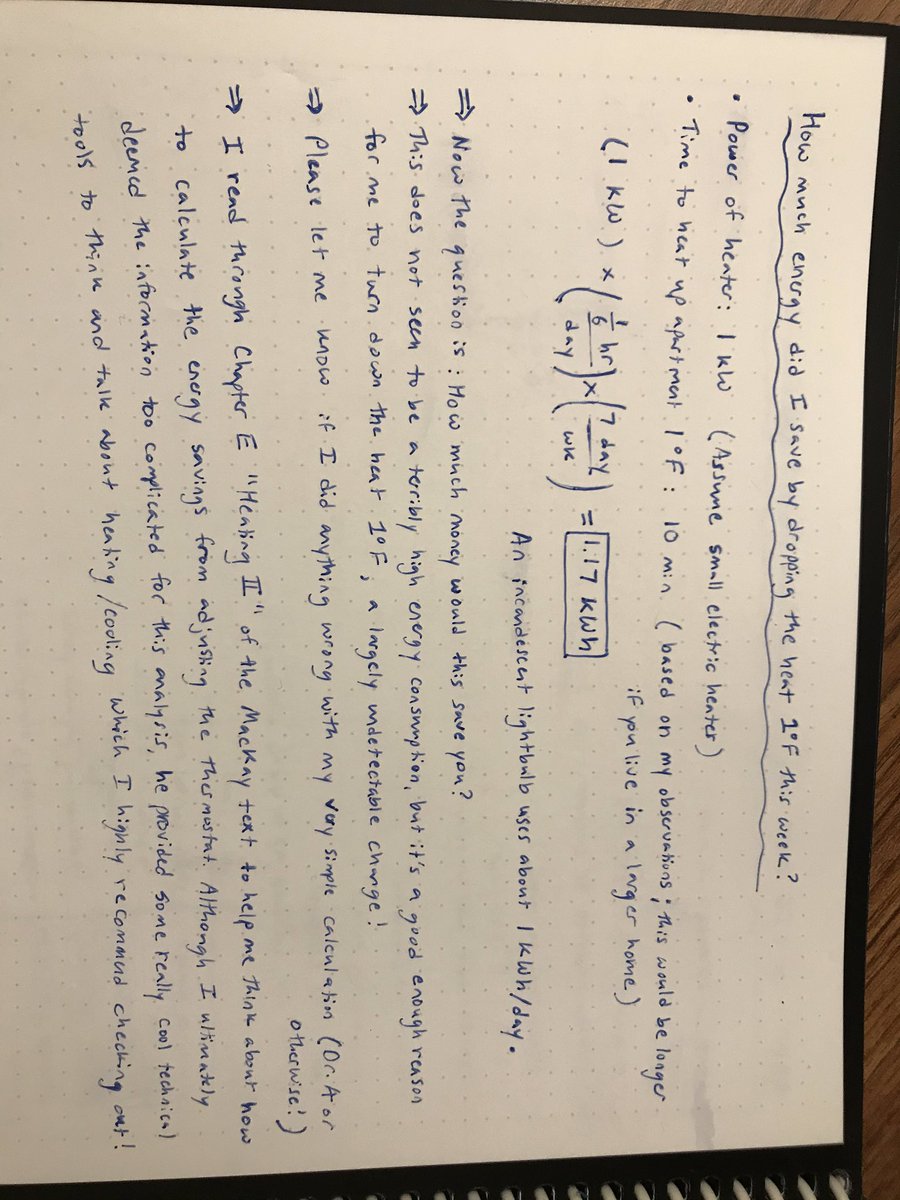 How much energy did I save by dropping the heat 1°F this week?
• Power of heater: 1 kW (Assume small electric heater)
• Time to heat up apartment 1°F: 10 min (based on my observations; this would be longer
if you live in a larger home)
(1 kW) × (1/6 hr / day) × (7 day / wk) = 1.17 kWh
An incandescent lightbulb uses about 1 kWh/day.
⇒ Now the question is: How much money would this save you?
⇒ This does not seen to be a terribly high energy consumption, but it's a good enough reason
for me to turn down the heat 1°F, a largely undetectable change!
⇒ Please let me know if I did anything wrong with my very simple calculation (Dr. A or
otherwise!)
⇒ I read through Chapter E "Heating II" of the MacKay text to help me think about how
to calculate the energy savings from adjusting the thermostat. Although I ultimately
deemed the information too complicated for this analysis, he provided some really cool technical
tools to think and talk about heating/cooling which I highly recommend checking out!